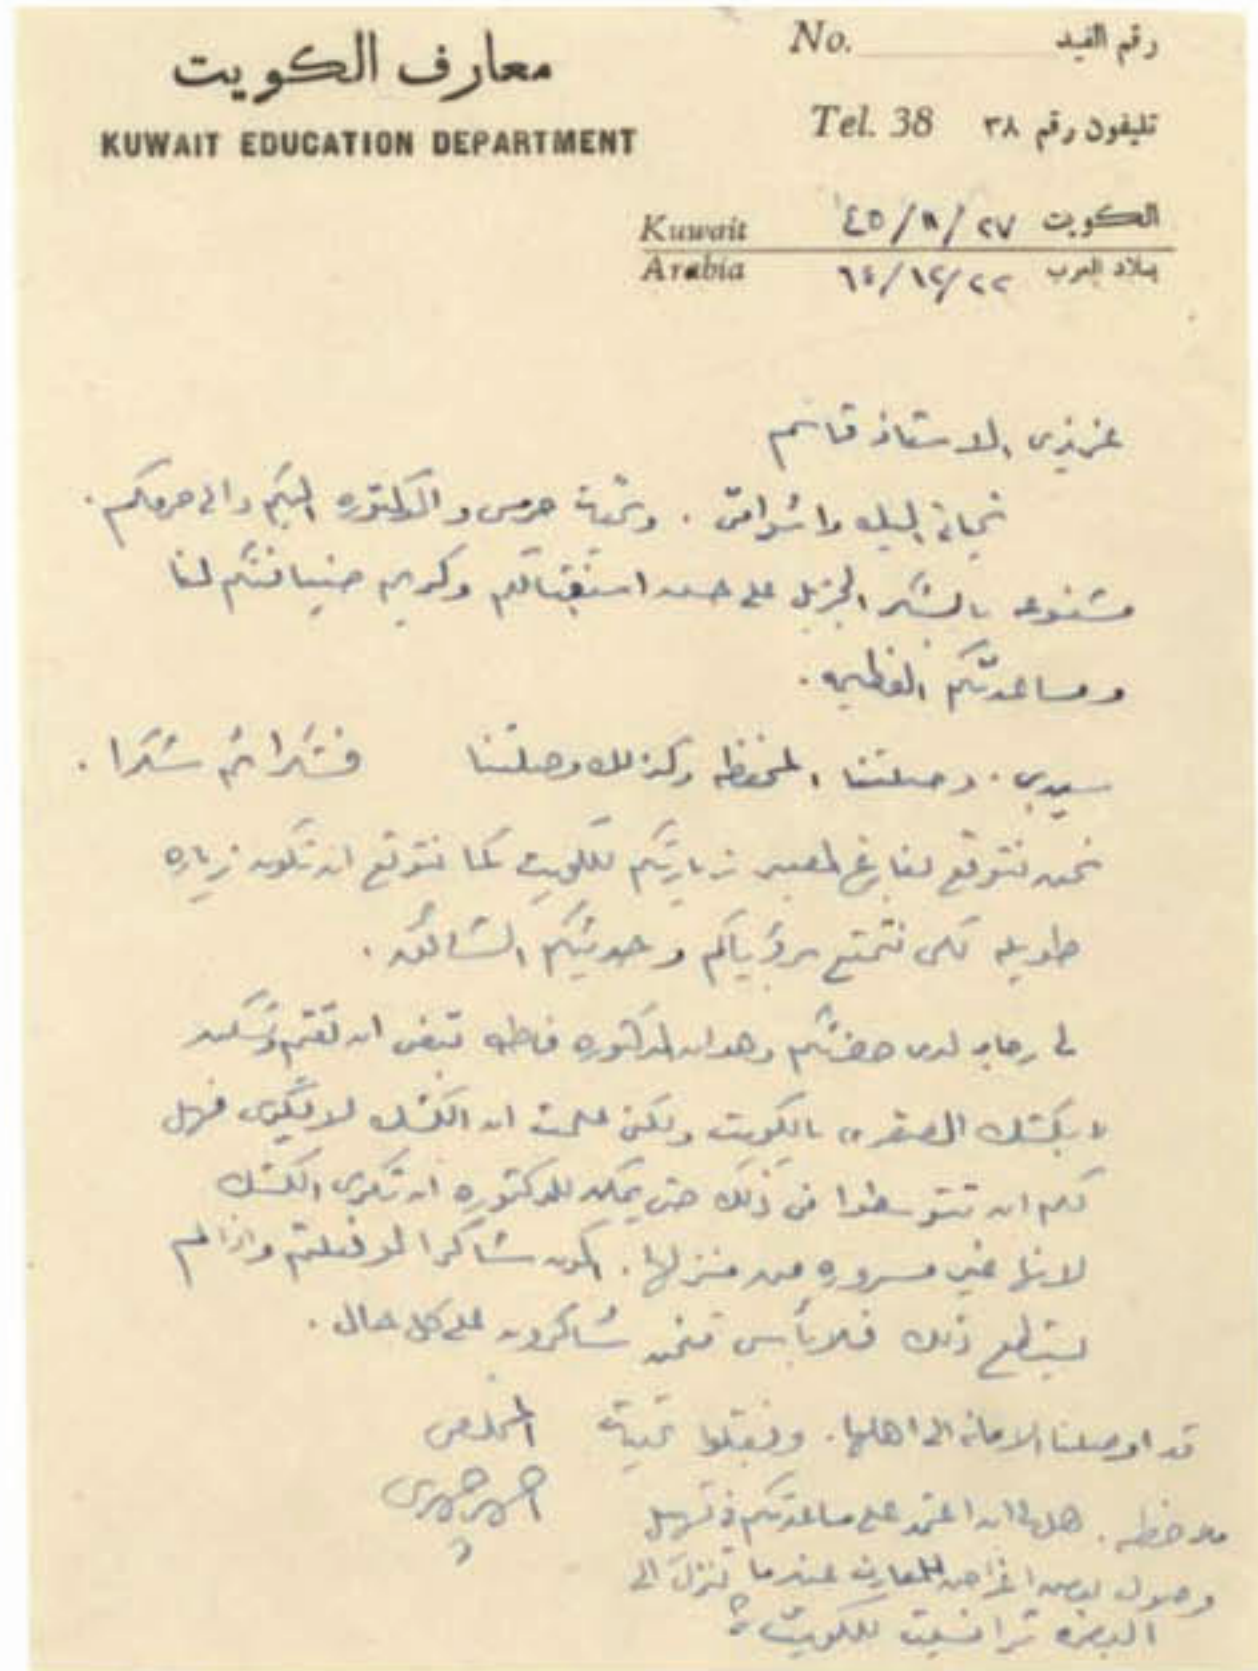 معارف الكويت
KUWAIT EDUCATION DEPARTMENT
No. رقم القيد
Tel. 38 تليفون رقم ٣٨
Kuwait ٤٥/١١/٢٧ الكويت
Arabia ٦٤/١٢/٢٢ بلاد العرب
عزيزي الاستاذ قاسم
تحياتي اليك واشواقي . وتحية حرمي والدكتوره اليكم والى حرمكم .
مشفوعه بالشكر الجزيل على حسن استقبالكم وكريم ضيافتكم لنا
ومساعدتكم العظيمه .
سيدي . وصلتنا المحفظه وكذلك وصلتنا فشكرا ثم شكرا .
نحن نتوقع بفارغ الصبر زيارتكم للكويت كما نتوقع ان تكون زياره
طويله لكي نتمتع برؤياكم وحديثكم الشائق .
لي رجاء لدى حضرتكم وهو ان الدكتوره فاطمه تبغى ان
بكشك الصقر بالكويت ولكن علمت ان الكشك لا يكرى فهل
لكم ان تتوسطوا في ذلك حتى يمكن للدكتوره ان تكرى الكشك
لانها غير مسروره من منزلها . اكون شاكرا لو فعلتم واذا لم
يستطع ذلك فلا بأس فنحن شاكرون على كل حال .
قد اوصلنا الامانه الى اهلها . وتفضلوا تحية المخلص
ملاحظه . هل لي ان اعتمد على مساعدتكم في تسهيل
وصول بعض اغراض للمعارف عندما تنزل الى
البصره ترانسيت للكويت ؟